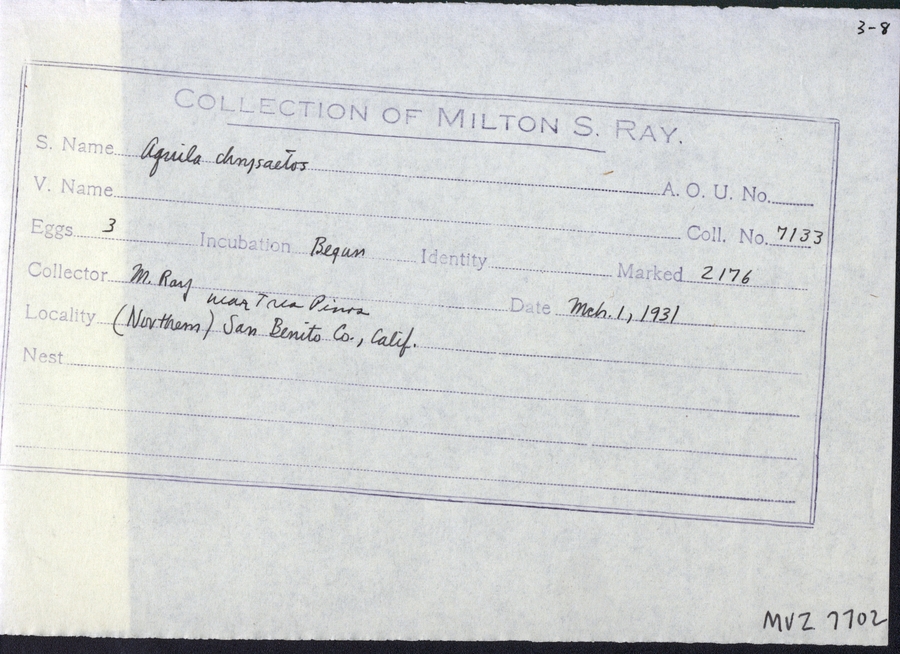 3-8
COLLECTION OF MILTON S. RAY.
S. Name Aquila chrysaetos A. O. U. No.
V. Name Coll. No. 7133
Eggs 3 Incubation Begun Identity Marked 2176
Collector M. Ray Date Mch. 1, 1931
near Tres Pinos
Locality (Northern) San Benito Co., Calif.
Nest
MVZ 7702